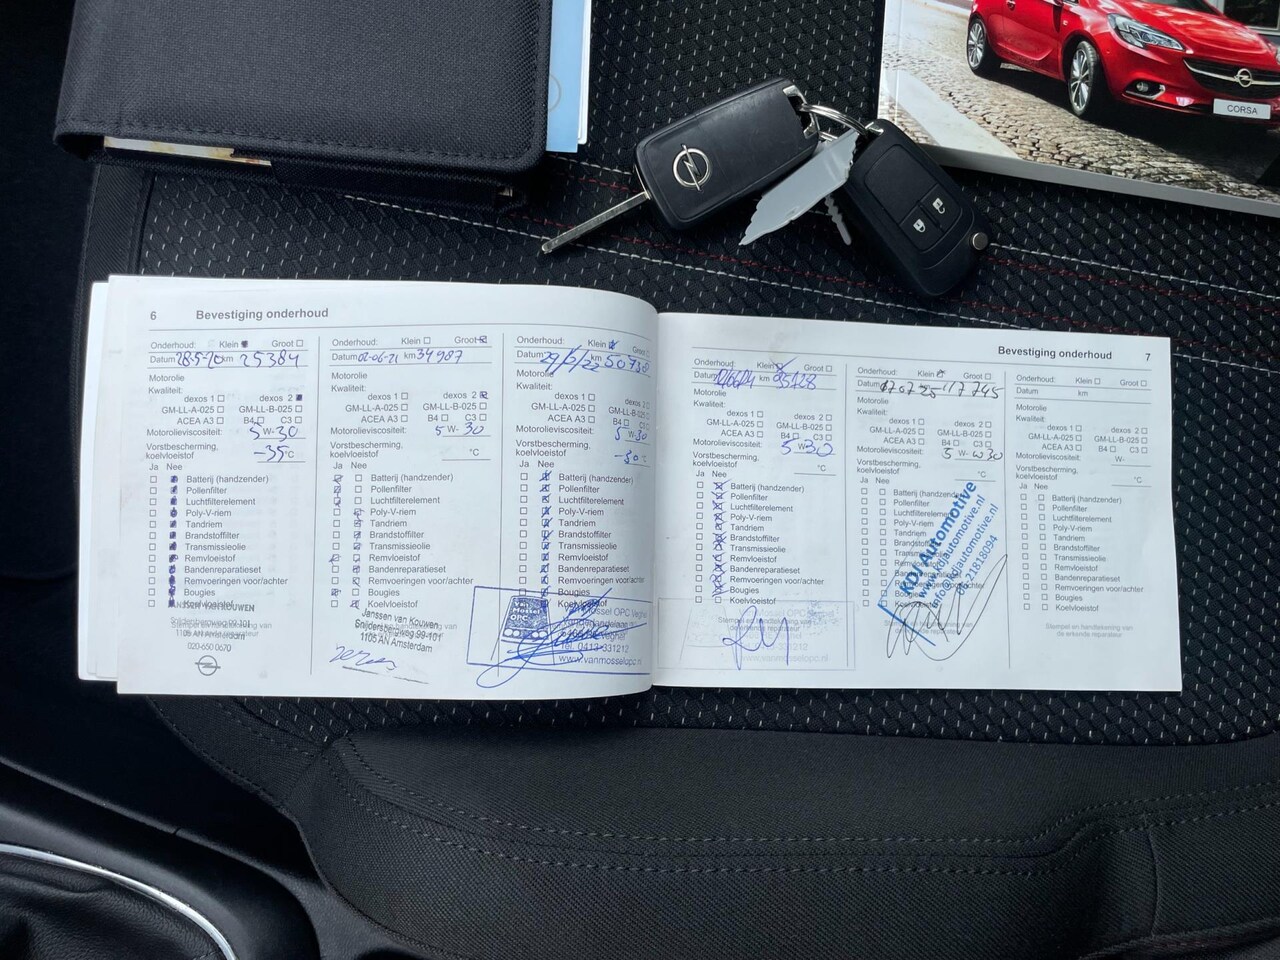 CORSA
6 Bevestiging onderhoud
Onderhoud: Klein Groot
Datum 28-5-20 km 25384
Motorolie
Kwaliteit:
dexos 1 dexos 2
GM-LL-A-025 GM-LL-B-025
ACEA A3 B4 C3
Motorolieviscositeit: 5 W-30
Vorstbescherming, koelvloeistof -35 °C
Ja Nee
Batterij (handzender)
Pollenfilter
Luchtfilterelement
Poly-V-riem
Tandriem
Brandstoffilter
Transmissieolie
Remvloeistof
Bandenreparatieset
Remvoeringen voor/achter
Bougies
Koelvloeistof
JANSSEN VAN KOUWEN
Snijdersbergweg 99-101
1105 AN Amsterdam
020-650 0670
Onderhoud: Klein Groot
Datum 02-06-21 km 34987
Motorolie
Kwaliteit:
dexos 1 dexos 2
GM-LL-A-025 GM-LL-B-025
ACEA A3 B4 C3
Motorolieviscositeit: 5 W-30
Vorstbescherming, koelvloeistof °C
Ja Nee
Batterij (handzender)
Pollenfilter
Luchtfilterelement
Poly-V-riem
Tandriem
Brandstoffilter
Transmissieolie
Remvloeistof
Bandenreparatieset
Remvoeringen voor/achter
Bougies
Koelvloeistof
Janssen van Kouwen
Snijdersbergweg 99-101
1105 AN Amsterdam
Onderhoud: Klein Groot
Datum km
Motorolie
Kwaliteit:
dexos 1 dexos 2
GM-LL-A-025 GM-LL-B-025
ACEA A3 B4 C3
Motorolieviscositeit: 5 W-30
Vorstbescherming, koelvloeistof -30 °C
Ja Nee
Batterij (handzender)
Pollenfilter
Luchtfilterelement
Poly-V-riem
Tandriem
Brandstoffilter
Transmissieolie
Remvloeistof
Bandenreparatieset
Remvoeringen voor/achter
Bougies
Koelvloeistof
Van Mossel OPC
Mossel OPC Veghel
Tel. 0413-331212
www.vanmosselopc.nl
Bevestiging onderhoud 7
Onderhoud: Klein Groot
Datum km
Motorolie
Kwaliteit:
dexos 1 dexos 2
GM-LL-A-025 GM-LL-B-025
ACEA A3 B4 C3
Motorolieviscositeit: 5 W-30
Vorstbescherming, koelvloeistof °C
Ja Nee
Batterij (handzender)
Pollenfilter
Luchtfilterelement
Poly-V-riem
Tandriem
Brandstoffilter
Transmissieolie
Remvloeistof
Bandenreparatieset
Remvoeringen voor/achter
Bougies
Koelvloeistof
Onderhoud: Klein Groot
Datum 117745
Motorolie
Kwaliteit:
dexos 1 dexos 2
GM-LL-A-025 GM-LL-B-025
ACEA A3 B4 C3
Motorolieviscositeit: 5 W-
Vorstbescherming, koelvloeistof °C
Ja Nee
Batterij (handzender)
Pollenfilter
Luchtfilterelement
Poly-V-riem
Tandriem
Brandstoffilter
Remvloeistof
Bandenreparatieset
Remvoeringen voor/achter
Bougies
KDJ Automotive
www.kdjautomotive.nl
info@kdjautomotive.nl
06-21818094
Onderhoud: Klein Groot
Datum km
Motorolie
Kwaliteit:
dexos 1 dexos 2
GM-LL-A-025 GM-LL-B-025
ACEA A3 B4 C3
Motorolieviscositeit: W-
Vorstbescherming, koelvloeistof °C
Ja Nee
Batterij (handzender)
Pollenfilter
Luchtfilterelement
Poly-V-riem
Tandriem
Brandstoffilter
Transmissieolie
Remvloeistof
Bandenreparatieset
Remvoeringen voor/achter
Bougies
Koelvloeistof
Stempel en handtekening van
de erkende reparateur